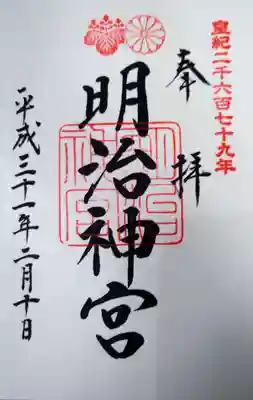 皇紀二千六百七十九年
奉拝
明治神宮
平成三十一年二月十日